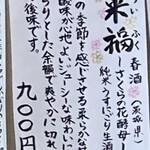 らいふく
来福
春酒(茨城県)
―さくらの花酵母―
純米うすにごり生酒
の季節を感じさせる柔らかな
酸味が心地よいジューシーな味わいに
りとした余韻で爽やかに切れ
後味です。
九〇〇円